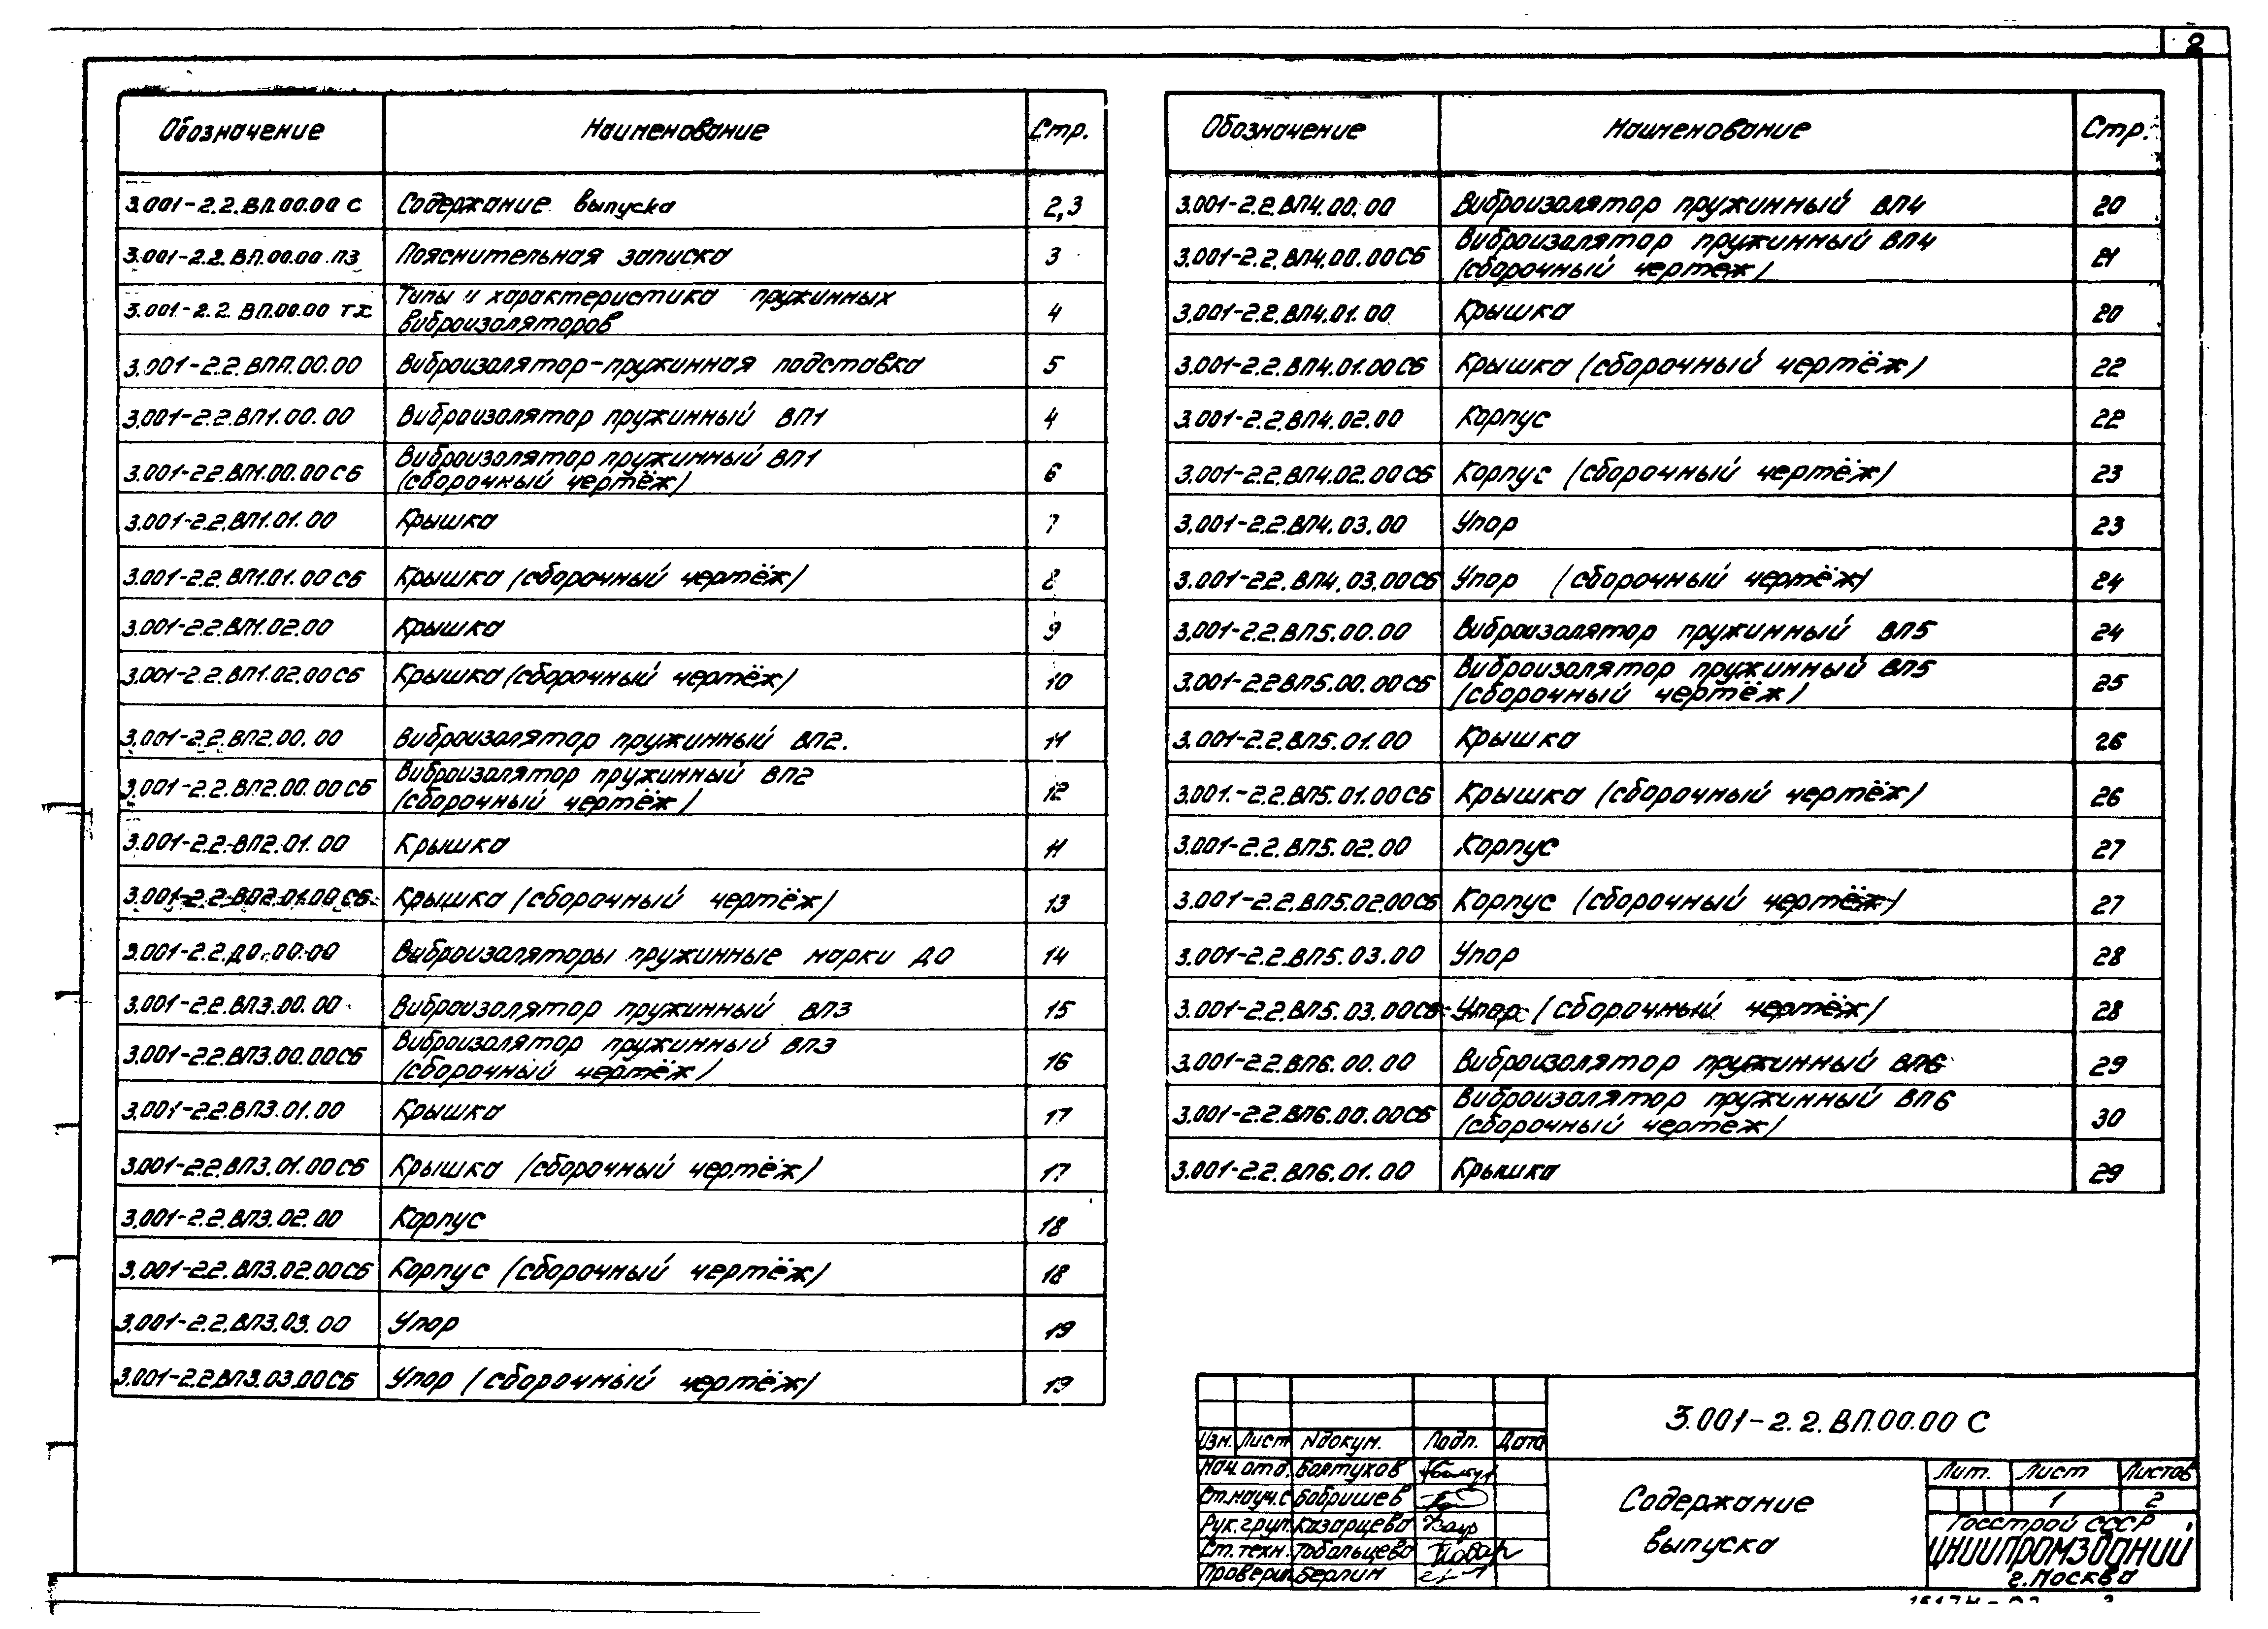 2
Обозначение Наименование Стр.
3.001-2.2.ВП.00.00 С Содержание выпуска 2,3
3.001-2.2.ВП.00.00.ПЗ Пояснительная записка 3
3.001-2.2.ВП.00.00 ТХ Типы и характеристика пружинных
виброизоляторов 4
3.001-2.2.ВПП.00.00 Виброизолятор-пружинная подставка 5
3.001-2.2.ВП1.00.00 Виброизолятор пружинный ВП1 4
3.001-2.2.ВП1.00.00СБ Виброизолятор пружинный ВП1
(сборочный чертёж) 6
3.001-2.2.ВП1.01.00 Крышка 7
3.001-2.2.ВП1.01.00СБ Крышка (сборочный чертёж) 8
3.001-2.2.ВП1.02.00 Крышка 9
3.001-2.2.ВП1.02.00СБ Крышка (сборочный чертёж) 10
3.001-2.2.ВП2.00.00 Виброизолятор пружинный ВП2. 11
3.001-2.2.ВП2.00.00СБ Виброизолятор пружинный ВП2
(сборочный чертёж) 12
3.001-2.2.ВП2.01.00 Крышка 11
3.001-2.2.ВП2.01.00СБ Крышка (сборочный чертёж) 13
3.001-2.2.ДО.00.00 Виброизоляторы пружинные марки ДО 14
3.001-2.2.ВП3.00.00 Виброизолятор пружинный ВП3 15
3.001-2.2.ВП3.00.00СБ Виброизолятор пружинный ВП3
(сборочный чертёж) 16
3.001-2.2.ВП3.01.00 Крышка 17
3.001-2.2.ВП3.01.00СБ Крышка (сборочный чертёж) 17
3.001-2.2.ВП3.02.00 Корпус 18
3.001-2.2.ВП3.02.00СБ Корпус (сборочный чертёж) 18
3.001-2.2.ВП3.03.00 Упор 19
3.001-2.2.ВП3.03.00СБ Упор (сборочный чертёж) 19
Обозначение Наименование Стр.
3.001-2.2.ВП4.00.00 Виброизолятор пружинный ВП4 20
3.001-2.2.ВП4.00.00СБ Виброизолятор пружинный ВП4
(сборочный чертеж) 21
3.001-2.2.ВП4.01.00 Крышка 20
3.001-2.2.ВП4.01.00СБ Крышка (сборочный чертёж) 22
3.001-2.2.ВП4.02.00 Корпус 22
3.001-2.2.ВП4.02.00СБ Корпус (сборочный чертёж) 23
3.001-2.2.ВП4.03.00 Упор 23
3.001-2.2.ВП4.03.00СБ Упор (сборочный чертёж) 24
3.001-2.2.ВП5.00.00 Виброизолятор пружинный ВП5 24
3.001-2.2ВП5.00.00СБ Виброизолятор пружинный ВП5
(сборочный чертёж) 25
3.001-2.2.ВП5.01.00 Крышка 26
3.001.-2.2.ВП5.01.00СБ Крышка (сборочный чертёж) 26
3.001-2.2.ВП5.02.00 Корпус 27
3.001-2.2.ВП5.02.00СБ Корпус (сборочный чертёж) 27
3.001-2.2.ВП5.03.00 Упор 28
3.001-2.2.ВП5.03.00СБ Упор (сборочный чертёж) 28
3.001-2.2.ВП6.00.00 Виброизолятор пружинный ВП6 29
3.001-2.2.ВП6.00.00СБ Виброизолятор пружинный ВП6
(сборочный чертеж) 30
3.001-2.2.ВП6.01.00 Крышка 29
3.001-2.2.ВП.00.00 С
Изм. Лист Nдокум. Подп. Дата
Нач.отд. Болтухов
Ст.науч.с Бобришев
Рук.груп. Казарцева
Ст.техн. Товальцева
Проверил Берлин
Содержание
выпуска
Лит. Лист Листов
1 2
Госстрой СССР
ЦНИИПРОМЗДАНИЙ
г.Москва